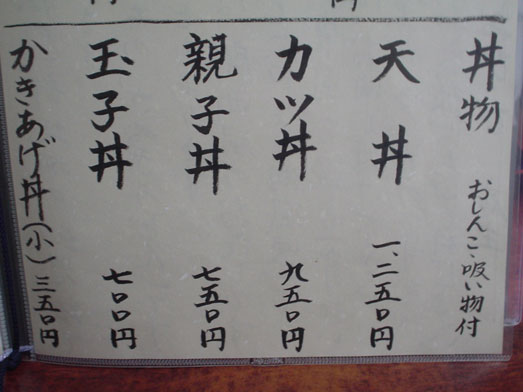 丼物 おしんこ、吸い物付
天丼 一、二五〇円
カツ丼 九五〇円
親子丼 七五〇円
玉子丼 七〇〇円
かきあげ丼(小) 三五〇円